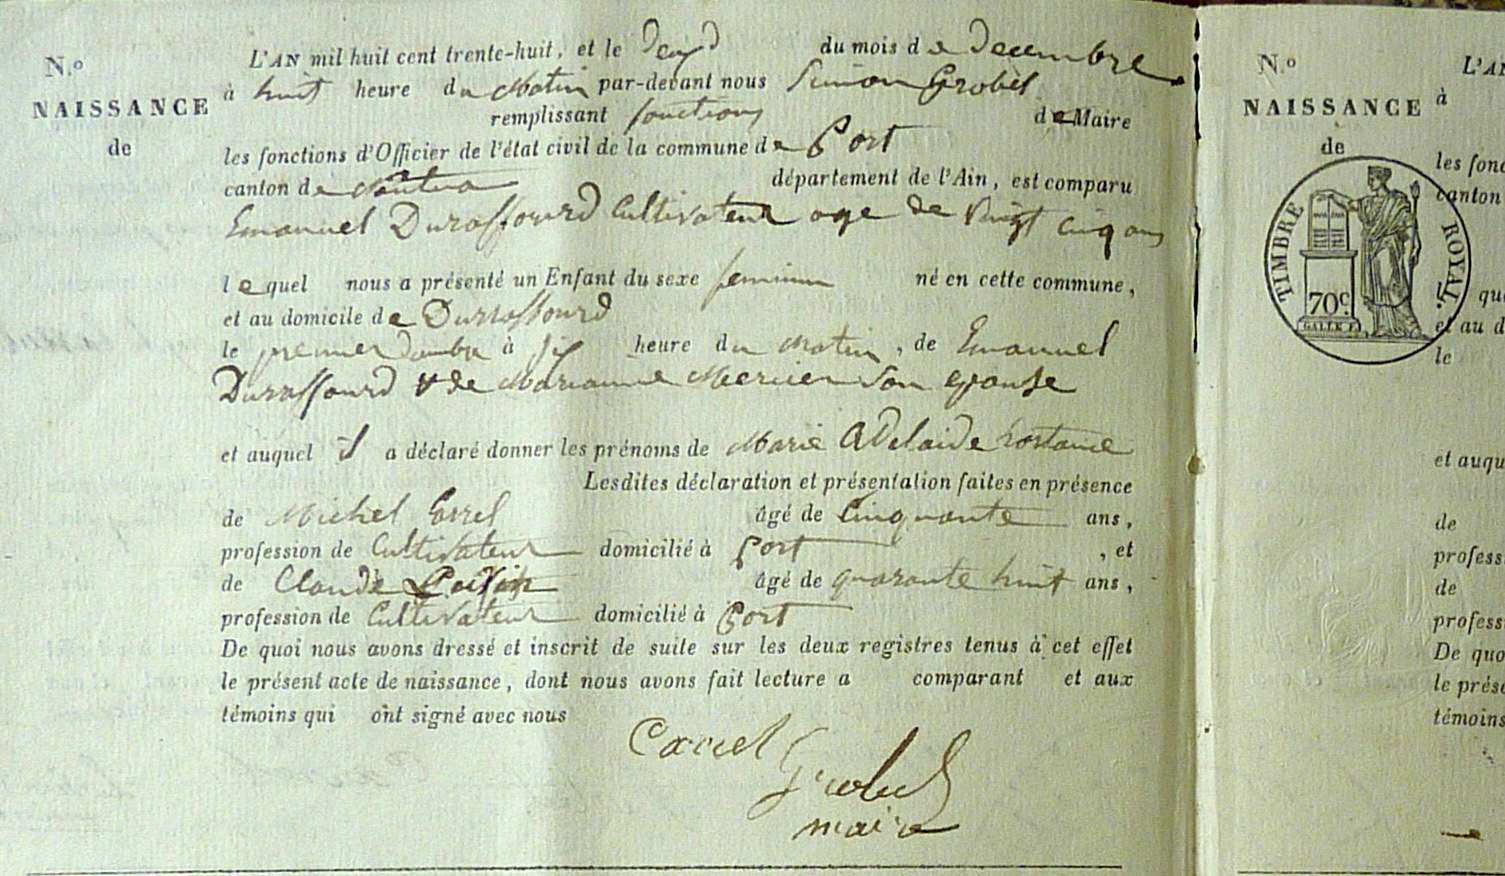 N.º
NAISSANCE
de
L'AN mil huit cent trente-huit, et le deux du mois de decembre
à huit heure du Matin par-devant nous Simon Grobel
remplissant fonctions de Maire
les fonctions d'Officier de l'état civil de la commune de Port
canton de Nantua département de l'Ain, est comparu
Emanuel Duraffourd Cultivateur age de vingt cinq ans
lequel nous a présenté un Enfant du sexe feminin né en cette commune,
et au domicile de Durraffourd
le premier à heure du Matin, de Emanuel
Duraffourd & de Marianne Mercier son epouse
et auquel il a déclaré donner les prénoms de Marie Adelaide
Lesdites déclaration et présentation faites en présence
de Michel âgé de Cinquante ans,
profession de Cultivateur domicilié à Port, et
de Claude âgé de quarante huit ans,
profession de Cultivateur domicilié à Port
De quoi nous avons dressé et inscrit de suite sur les deux registres tenus à cet effet
le présent acte de naissance, dont nous avons fait lecture a comparant et aux
témoins qui ont signé avec nous
Grobel
maire
N.º
NAISSANCE
de
TIMBRE ROYAL.
70c
L'AN
à
les fonc
canton
qu
et au d
le
et auqu
de
profess
de
profess
De quo
le prés
témoins